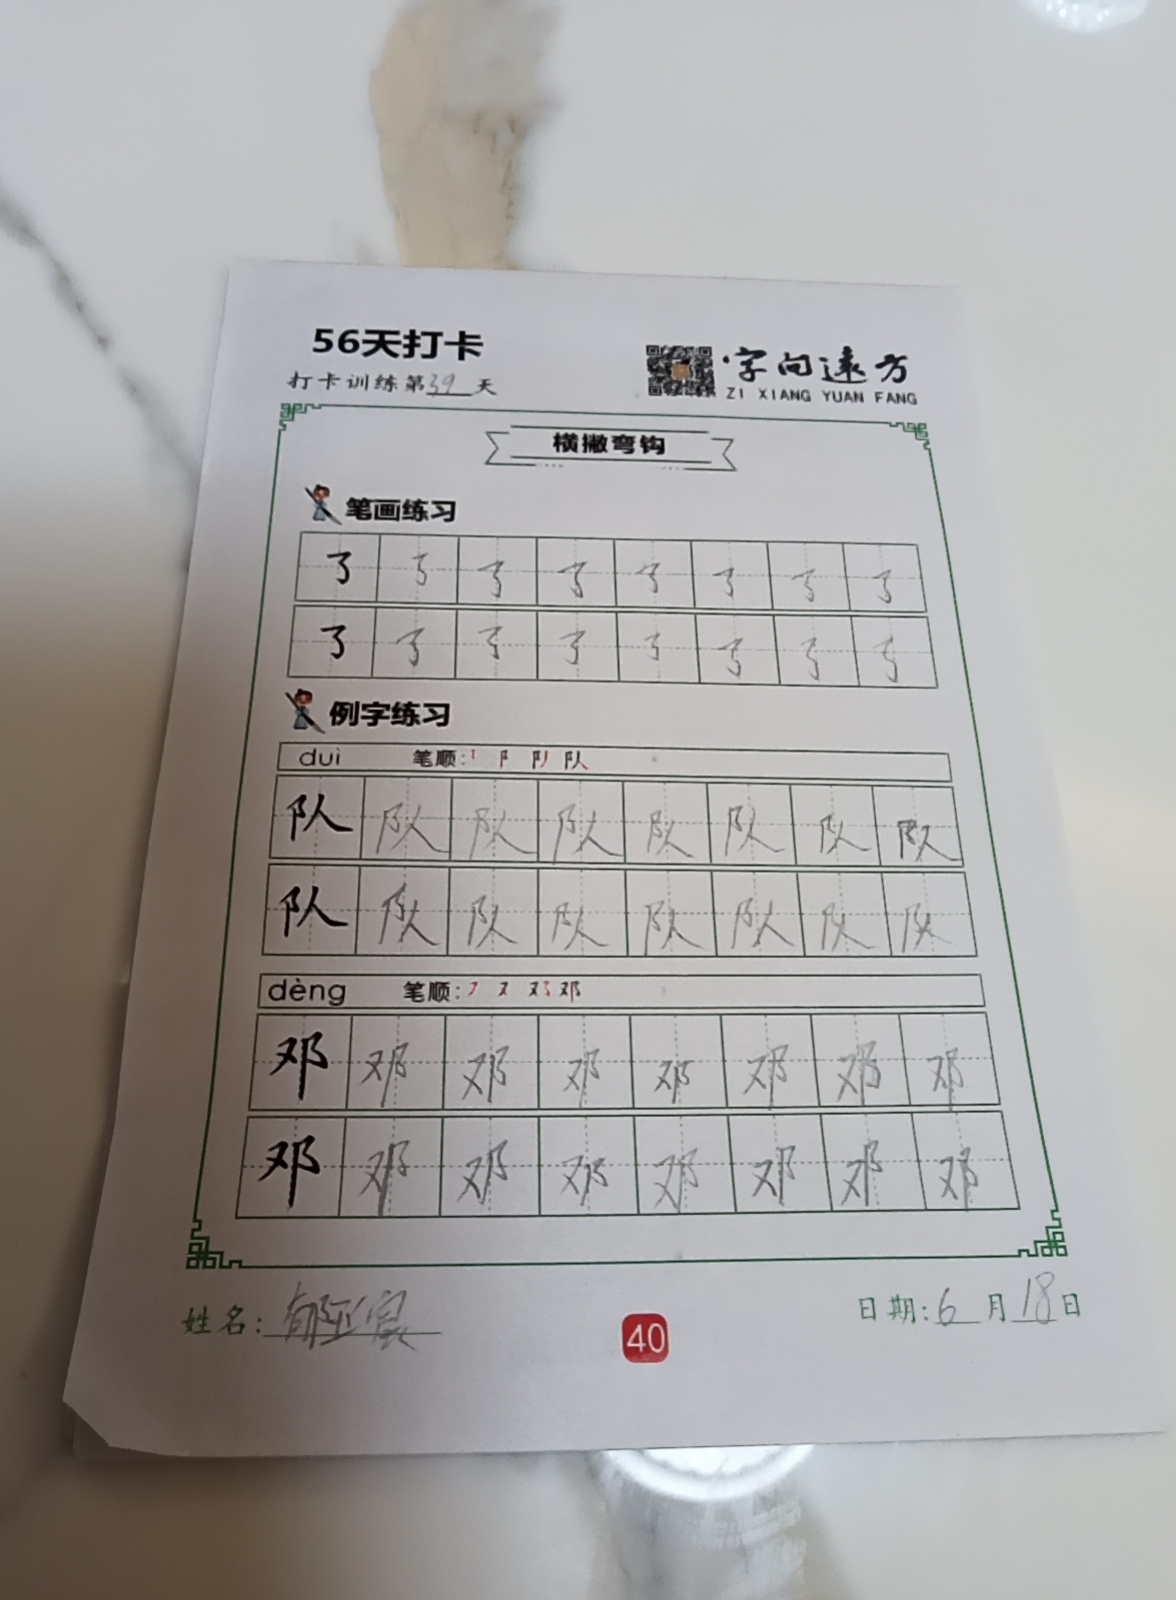 56天打卡
打卡训练第39天
字向远方
ZI XIANG YUAN FANG
横撇弯钩
笔画练习
例字练习
duì 笔顺:
队 队 队 队 队 队 队 队
队 队 队 队 队 队 队 队
dèng 笔顺:
邓 邓 邓 邓 邓 邓 邓 邓
邓 邓 邓 邓 邓 邓 邓 邓
姓名:
40
日期:6月18日